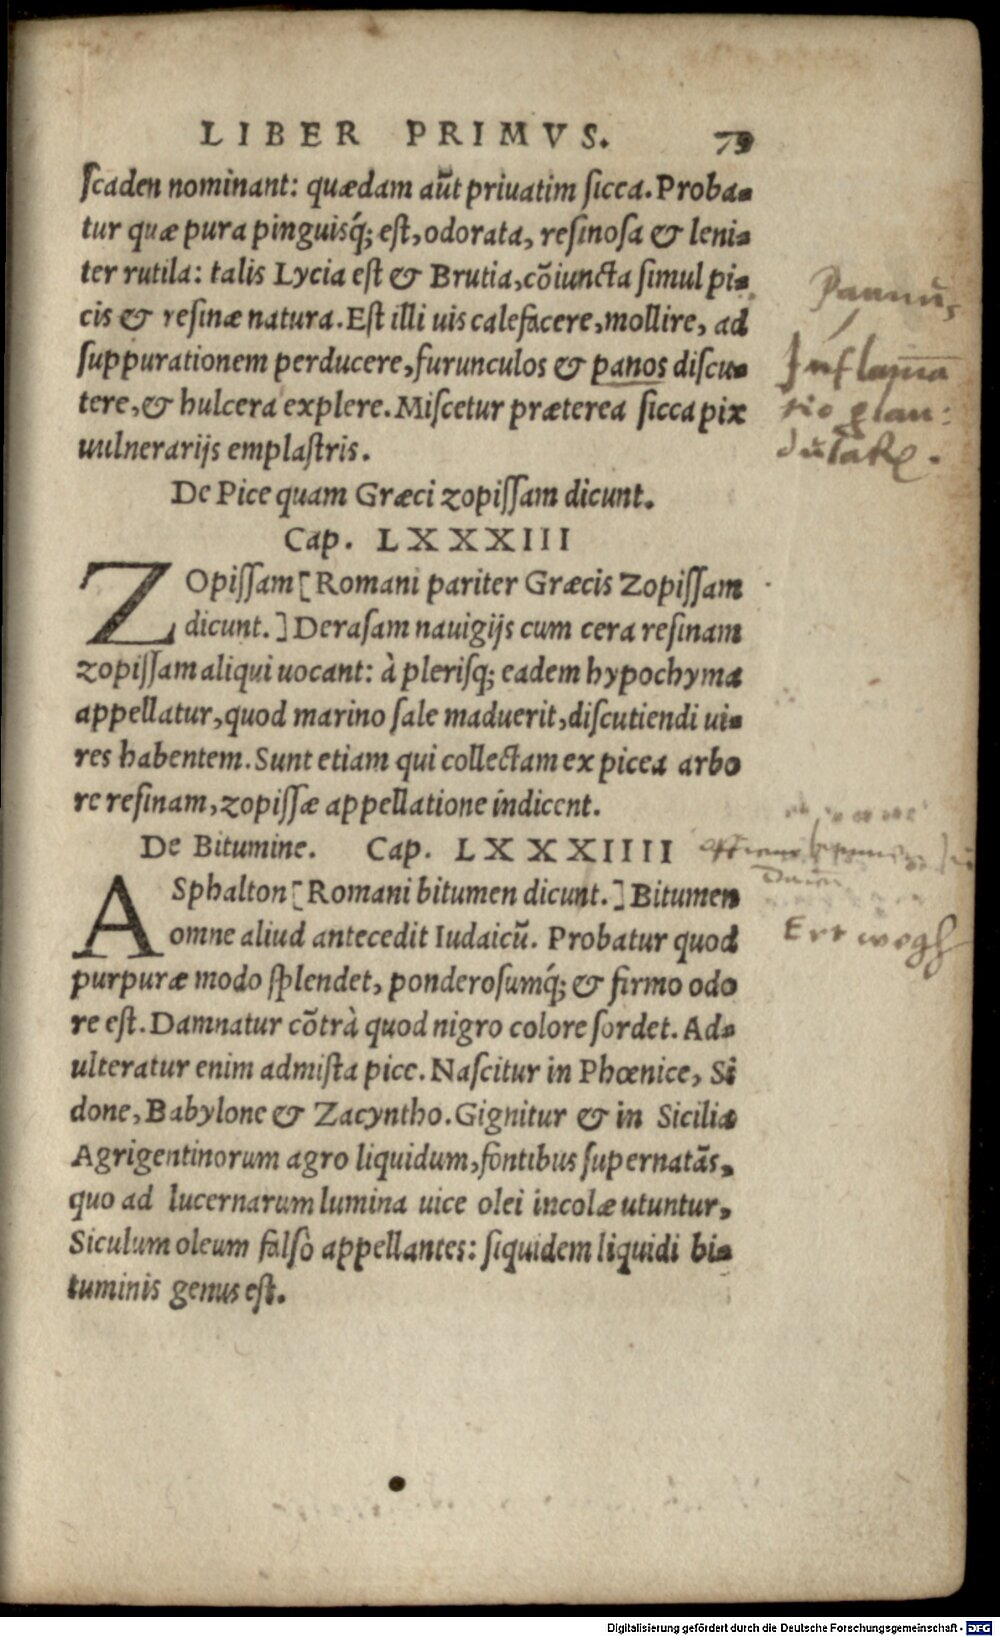 LIBER PRIMVS. 79
scaden nominant: quædam aūt priuatim sicca. Proba-
tur quæ pura pinguisq́; est, odorata, resinosa & leni-
ter rutila: talis Lycia est & Brutia, cōiuncta simul pi-
cis & resinæ natura. Est illi uis calefacere, mollire, ad
suppurationem perducere, furunculos & panos discu-
tere, & hulcera explere. Miscetur præterea sicca pix
uulnerarijs emplastris.
Pannus
Inflama
tio glan:
dulaRe.
De Pice quam Græci zopissam dicunt.
Cap. LXXXIII
ZOpissam [Romani pariter Græcis Zopissam
dicunt.] Derasam nauigijs cum cera resinam
zopissam aliqui uocant: à plerisq; eadem hypochyma
appellatur, quod marino sale maduerit, discutiendi ui-
res habentem. Sunt etiam qui collectam ex picea arbo
re resinam, zopissæ appellatione indicent.
De Bitumine. Cap. LXXXIIII
ASphalton [Romani bitumen dicunt.] Bitumen
omne aliud antecedit Iudaicū. Probatur quod
purpuræ modo splendet, ponderosumq́; & firmo odo
re est. Damnatur cōtrà quod nigro colore sordet. Ad-
ulteratur enim admista pice. Nascitur in Phœnice, Si
done, Babylone & Zacyntho. Gignitur & in Sicilia
Agrigentinorum agro liquidum, fontibus supernatãs,
quo ad lucernarum lumina uice olei incolæ utuntur,
Siculum oleum falsò appellantes: siquidem liquidi bi-
tuminis genus est.
Digitalisierung gefördert durch die Deutsche Forschungsgemeinschaft - DFG